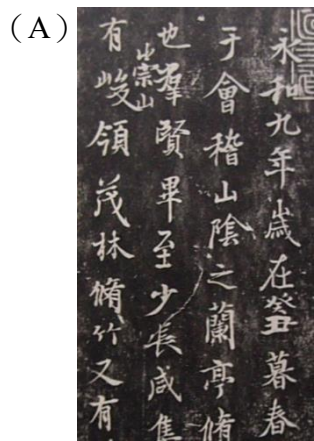 (A)
永和九年歲在癸丑暮春
于會稽山陰之蘭亭脩
也羣賢畢至少長咸集
有崇山峻領茂林脩竹又有